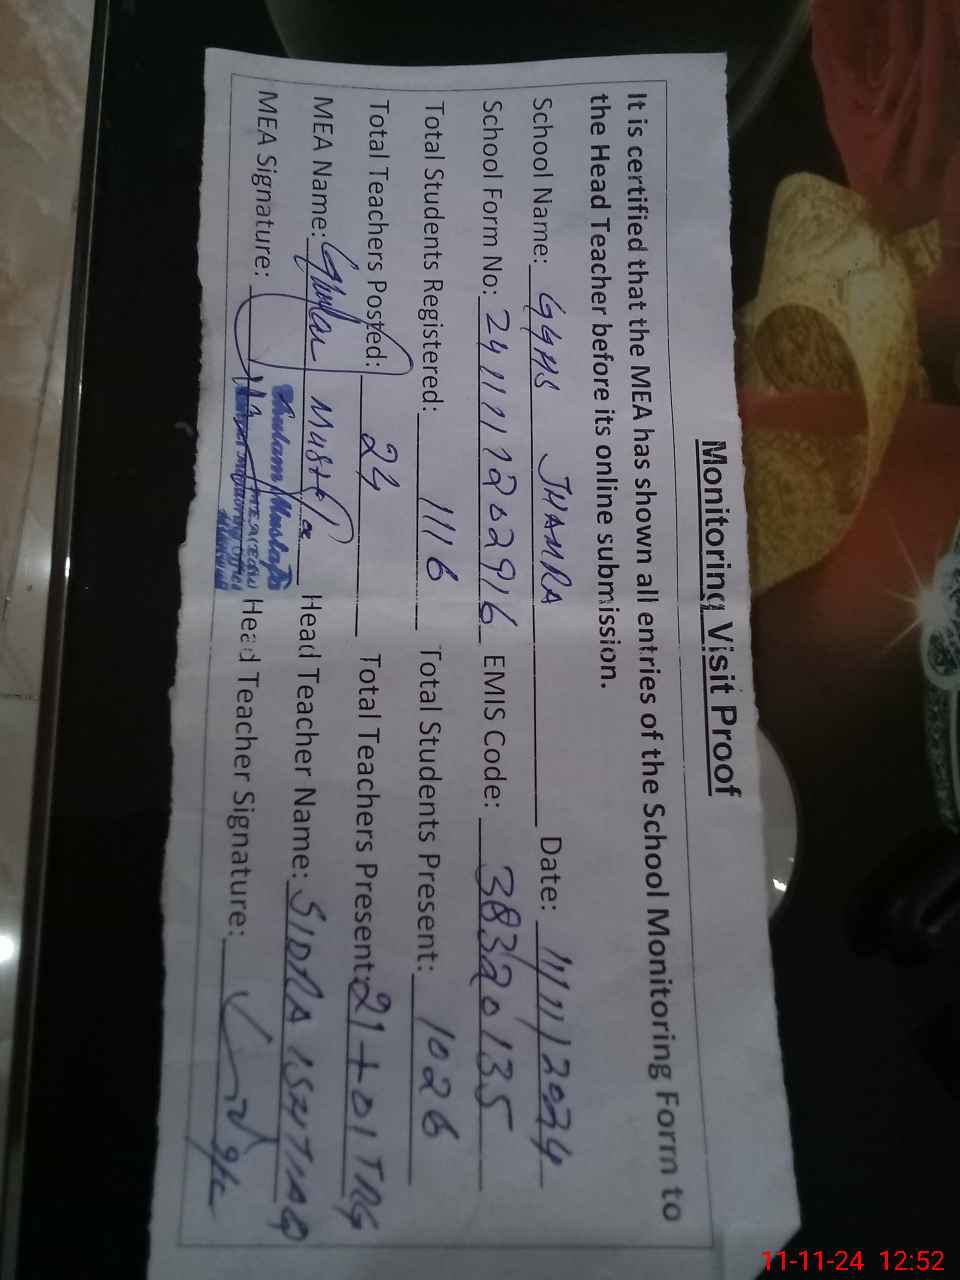 Monitoring Visit Proof
It is certified that the MEA has shown all entries of the School Monitoring Form to
the Head Teacher before its online submission.
School Name: GGHS JHAMRA Date: 11/11/2024
School Form No: 241111202916 EMIS Code: 38320135
Total Students Registered: 1116 Total Students Present: 1026
Total Teachers Posted: 24 Total Teachers Present: 21+01 TRG
MEA Name: Ghulam Mustafa Head Teacher Name: SIDRA ISHTIAQ
MEA Signature: Head Teacher Signature:
Ghulam Mustafa
11-11-24 12:52